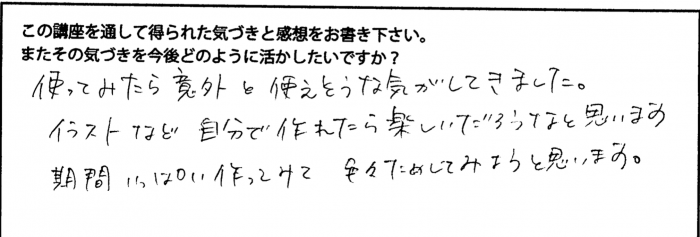 この講座を通して得られた気づきと感想をお書き下さい。
またその気づきを今後どのように活かしたいですか？
使ってみたら意外と使えそうな気がしてきました。
イラストなど自分で作れたら楽しいだろうなと思います
期間いっぱい作ってみて色々ためしてみようと思います。